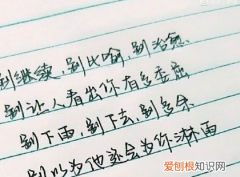 别继续，别比喻，别治愈.
别让人看出你有多委屈
别下雨，别下去，别多余
别以为他还会为你淋雨
爱刨根知识网